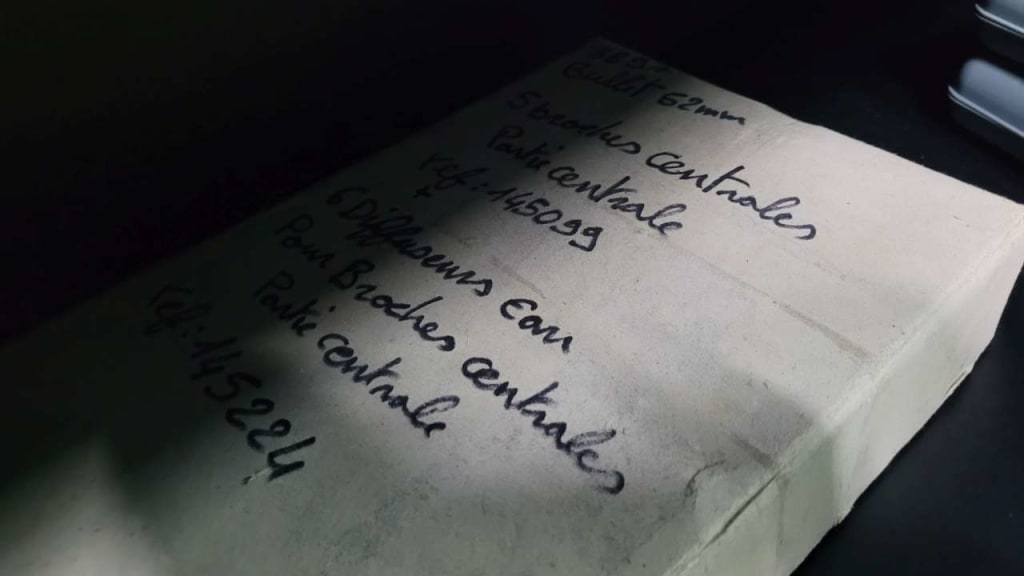 62mm
5 broches centrales
Partie centrale
Réf.: 145099
+
6 Diffuseurs Eau
Pour Broches centrales
Partie centrale
Réf.: 145224